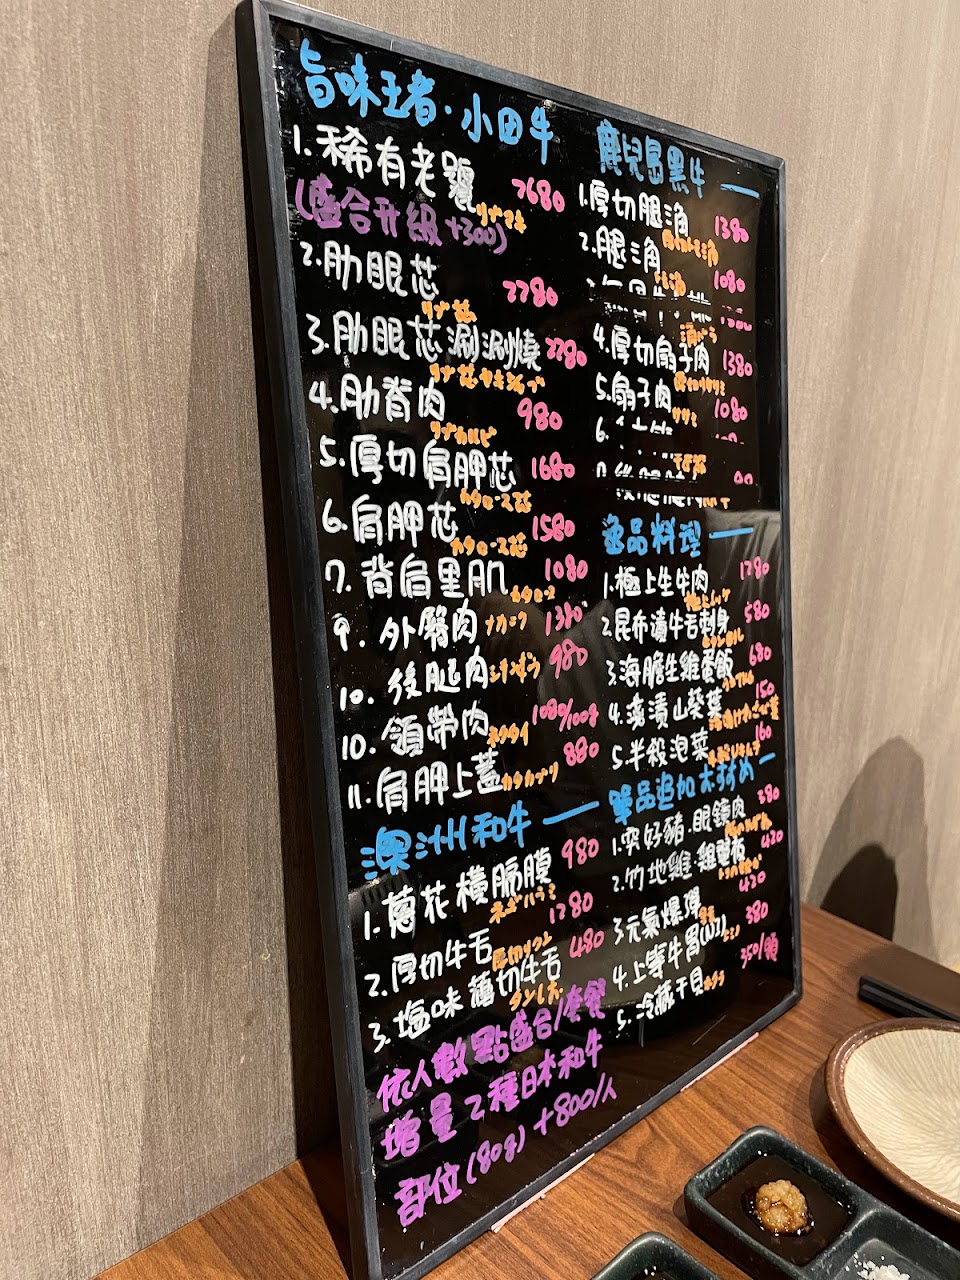 旨味王者・小田牛
1.稀有老饕 2680
リブマキ
(盛合升級+300)
2.肋眼芯 2280
リブ芯
3.肋眼芯涮涮燒 2280
リブ芯ヤキシャブ
4.肋脊肉 980
リブカルビ
5.厚切肩胛芯 1680
カタロース芯
6.肩胛芯 1580
カタロース芯
7.背肩里肌 1080
カタロース
9.外臀肉 ナカニク 1380
10.後腿肉 980
10.領帶肉 ネクタイ 1080/100g
11.肩胛上蓋 カタカブリ 880
澳洲和牛 —
1.蔥花橫膈膜 980
ネギハラミ
2.厚切牛舌 1280
厚切りタン
3.塩味薄切牛舌 480
タンしお
依人數點盛合/套餐
增量2種日本和牛
部位(80g)+800/人
鹿兒島黑牛 —
1.厚切腿三角 1380
2.腿三角 1080
4.厚切扇子肉 1380
5.扇子肉 1080
ササミ
6.
逸品料理 —
1.極上生牛肉 1280
極上ユッケ
2.昆布漬牛舌刺身 580
3.海膽生雞蛋飯 680
4.漬山葵葉 150
5.半殺泡菜 160
單品追加おすすめ —
1.究好豬・眼鏡肉 380
2.竹地雞・雞翼板 420
3.元氣爆彈 420
4.上等牛胃(NZ) 380
ミノ
5.冷藏干貝 ホタテ 350/顆